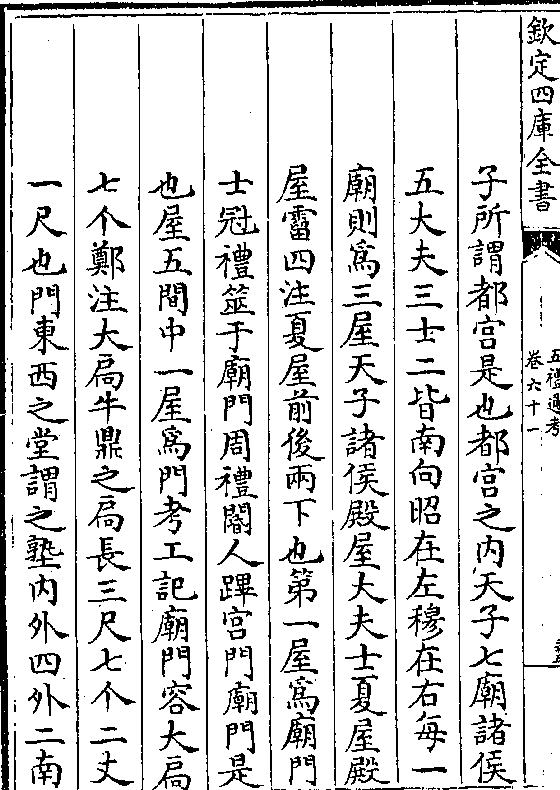 欽定四庫全書
五禮通考
卷六十一
子所謂都宫是也都宫之内天子七廟諸侯
五大夫三士二皆南向昭在左穆在右每一
廟則為三屋天子諸侯殿屋大夫士夏屋殿
屋霤四注夏屋前後兩下也第一屋為廟門
士冠禮筮于廟門周禮閽人蹕宫門廟門是
也屋五間中一屋為門考工記廟門容大扃
七个鄭注大扃牛鼎之扃長三尺七个二丈
一尺也門東西之堂謂之塾内外四外二南